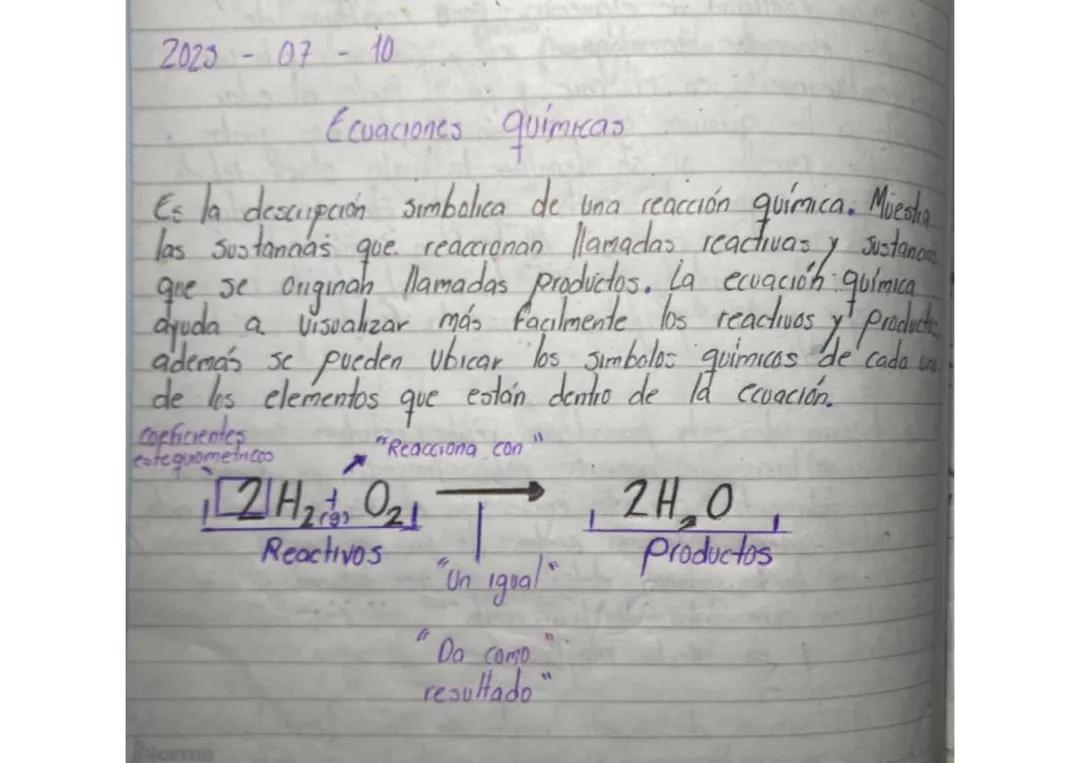 2023 - 07 - 10
Ecuaciones químicas
Es la descripción simbolica de una reacción química. Muestra
las sustancias que reaccionan llamadas reactivas y sustancias
que se originan llamadas productos. La ecuación química
ayuda a visualizar más facilmente los reactivos y producto
además se pueden ubicar los simbolos químicos de cada uno
de los elementos que están dentro de la ecuación.
coeficientes
estequiometricos
"Reacciona con"
2H₂(g) + O₂ → 2H₂O
Reactivos
Productos
"Un igual"
"Da como"
resultado"
Norma